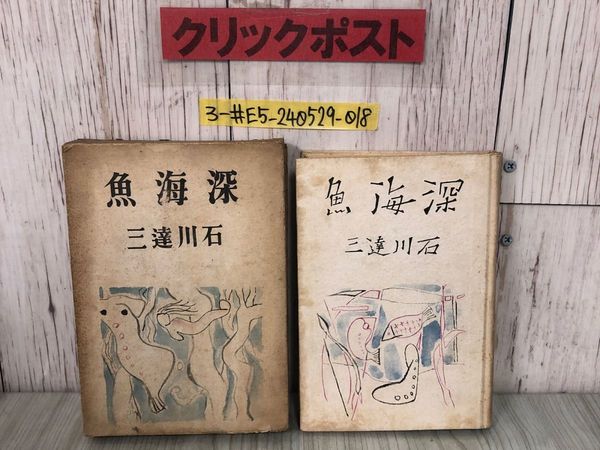 クリックポスト
3-#E5-240529-018
魚海深
三達川石
魚海深
三達川石